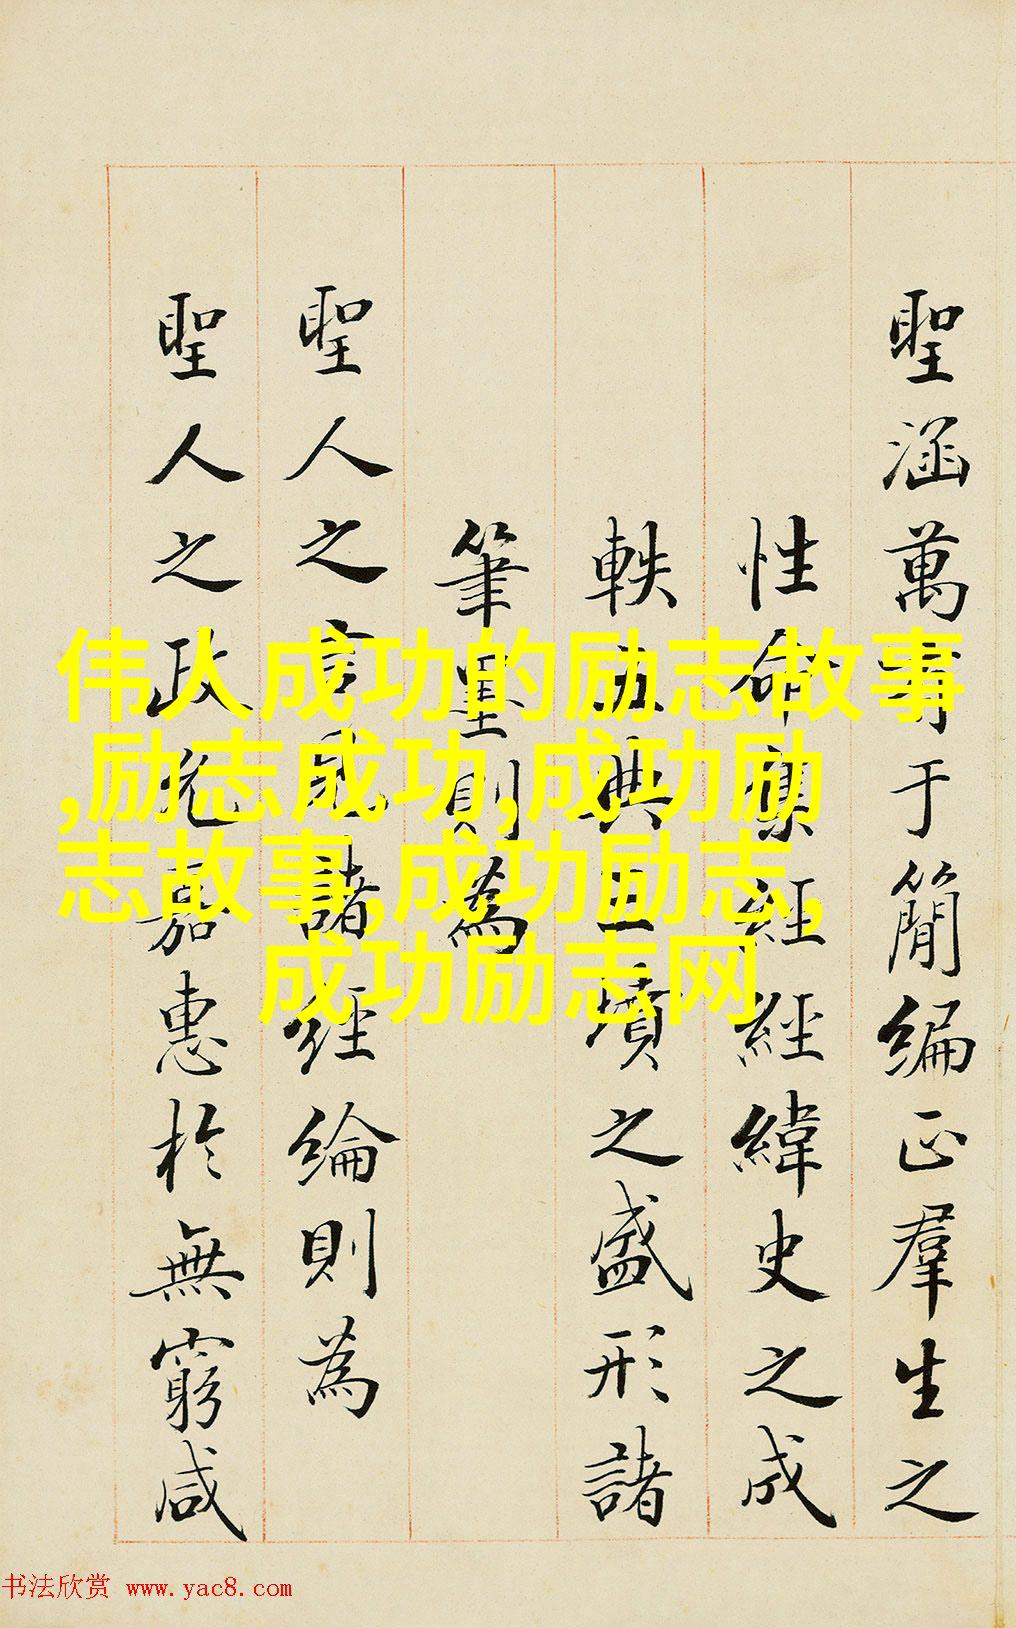 聖涵萬于簡編正羣生之
性命集經經緯史之成
軼五典三墳之盛形諸
筆墨則為
聖人之言諸經綸則為
聖人之政嘉惠於無窮咸
伟人成功的励志故事
,励志成功,成功励
志故事,成功励志,
成功励志网
书法欣赏 www.yac8.com